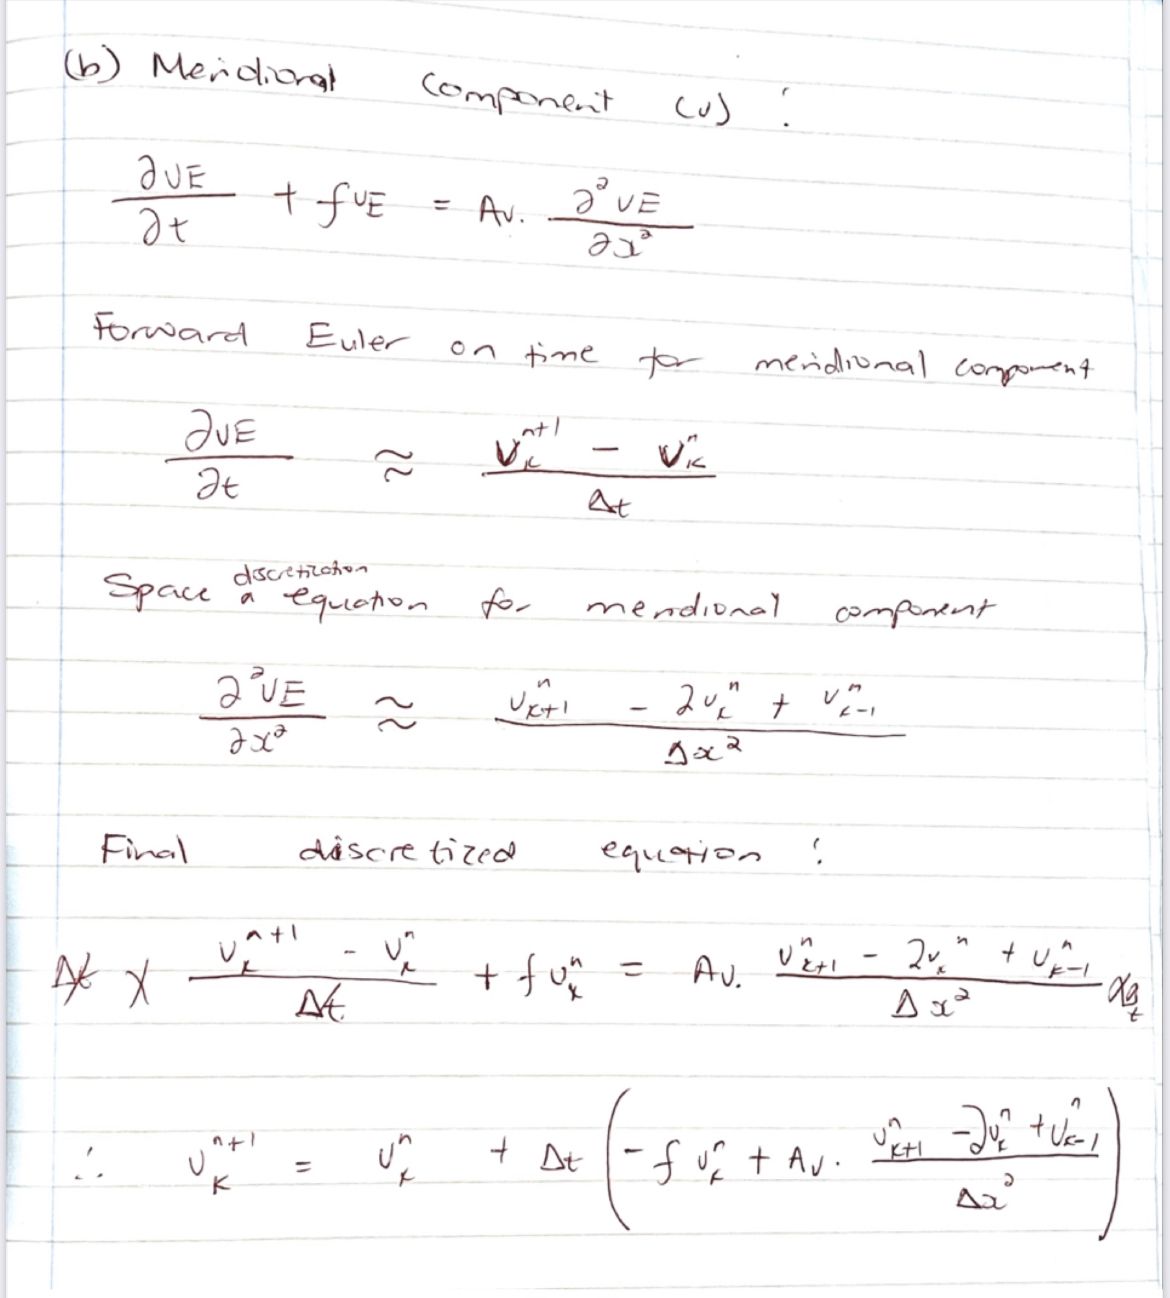 (b) Meridional Component (v) :
∂vE/∂t + fuE = Av. ∂²vE/∂x²
Forward Euler on time for meridional component
∂vE/∂t ≈ (v_k^{n+1} - v_k^n)/Δt
Space discretization equation for meridional component
∂²vE/∂x² ≈ (v_{k+1}^n - 2v_k^n + v_{k-1}^n)/Δx²
Final discretized equation :
Δt × (v_k^{n+1} - v_k^n)/Δt + f u_k^n = Av. (v_{k+1}^n - 2v_k^n + v_{k-1}^n)/Δx² × Δt
∴ v_k^{n+1} = v_k^n + Δt (-f u_k^n + Av. (v_{k+1}^n - 2v_k^n + v_{k-1}^n)/Δx²)